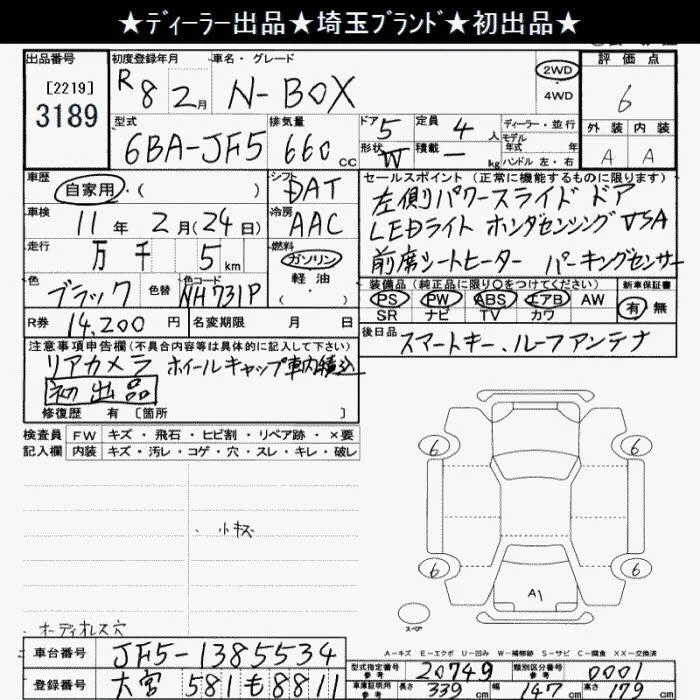 ★ディーラー出品★埼玉ブランド★初出品★
出品番号
[2219]
3189
初度登録年月
R 8 2月
車名・グレード
N-BOX
2WD
・
4WD
評価点
6
型式
6BA-JF5
排気量
660 cc
ドア 5
定員 4 人
形状 W
積載 ー kg
ディーラー・並行
モデル年式 年
ハンドル 左・右
外装 内装
A A
車歴
自家用・(
シフト
DAT
車検
11年 2月(24日)
冷房
AAC
走行
万 千 5 km
燃料
ガソリン
・
軽油
(
色
ブラック
色替
色コード
NH731P
R券 14,200 円
名変期限 月 日
セールスポイント(正常に機能するものに限ります)
左側パワースライドドア
LEDライト ホンダセンシング VSA
前席シートヒーター パーキングセンサー
装備品(純正品に限り○をつけてください)
PS PW ABS エアB AW
SR ナビ TV カワ
新車保証書
有・無
後日品 スマートキー、ルーフアンテナ
注意事項申告欄(不具合内容等は具体的に記入して下さい)
リアカメラ ホイールキャップ車内積込
初出品
修復歴 有 〔箇所 〕
検査員 FW キズ・飛石・ヒビ割・リペア跡・×要
記入欄 内装 キズ・汚レ・コゲ・穴・スレ・キレ・破レ
、小キズ
オーディオレス穴
6 6
6 6
A1
スペア
A-キズ E-エクボ U-凹み W-補修跡 S-サビ C-腐食 XX-交換済
車台番号 JF5-1385534
登録番号 大宮 581 も 8811
型式指定番号 参考 20749
類別区分番号 参考 0001
車庫証明用 参考 長さ 339 cm 幅 147 cm 高さ 179 cm